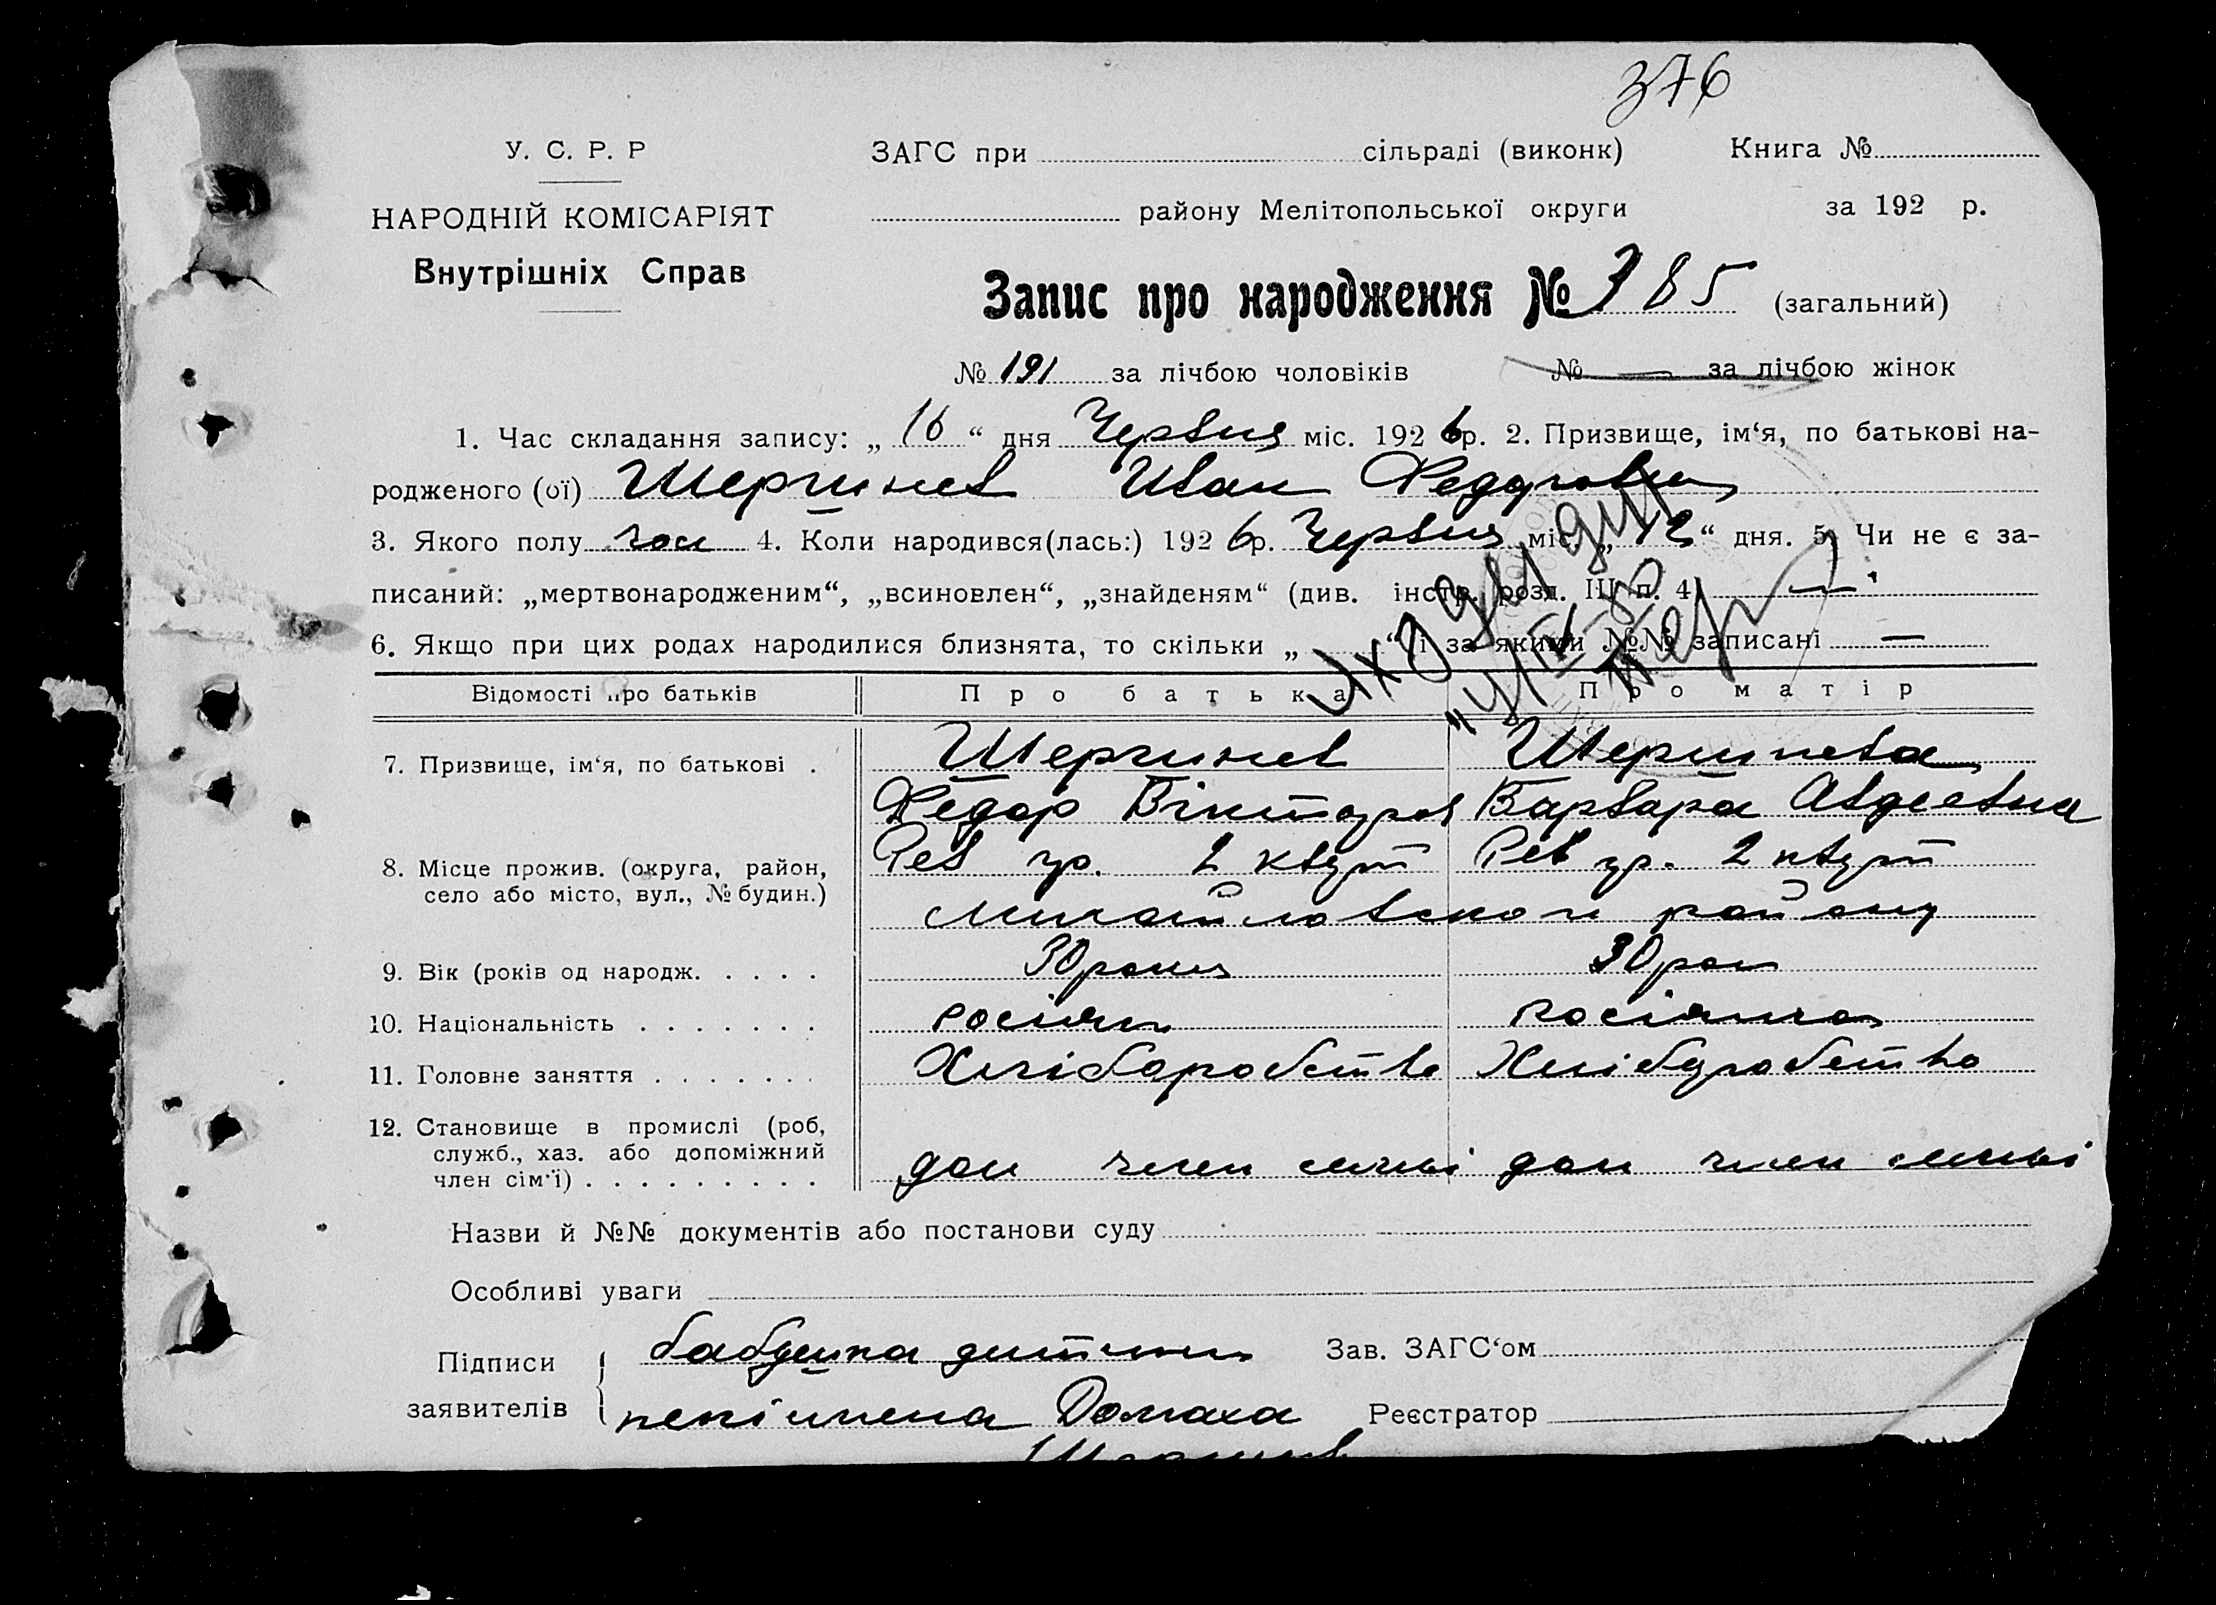 376
У. С. Р. Р
ЗАГС при сільраді (виконк) Книга №
НАРОДНІЙ КОМІСАРІЯТ
району Мелітопольської округи за 192 р.
Внутрішніх Справ
Запис про народження № 385 (загальний)
№ 191 за лічбою чоловіків № — за лічбою жінок
1. Час складання запису: „ 16 “ дня Червня міс. 1926 р. 2. Призвище, ім‘я, по батькові на-
родженого (ої) Иван
3. Якого полу чол 4. Коли народився(лась:) 1926 р. Червня міс. „ 12 “ дня. 5. Чи не є за-
писаний: „мертвонародженим“, „всиновлен“, „знайденям“ (див. інстр. розд. III п. 4) —
6. Якщо при цих родах народилися близнята, то скільки „ “ і за якими №№ записані —
Відомості про батьків Про батька Про матір
7. Призвище, ім‘я, по батькові .
Федор Варвара Авдеевна
8. Місце прожив. (округа, район, Рев гр. 2 Рев гр. 2
село або місто, вул., № будин.) району
9. Вік (років од народж. . . . . 30 роки 30 рок
10. Національність . . . . . . . росіян росіянка
11. Головне заняття . . . . . . . Хліборобство Хліборобство
12. Становище в промислі (роб,
служб., хаз. або допоміжний дом член семьі дом член семьі
член сім‘ї) . . . . . . . . .
Назви й №№ документів або постанови суду
Особливі уваги
Підписи бабушка дитини Зав. ЗАГС‘ом
заявителів Домаха Реєстратор